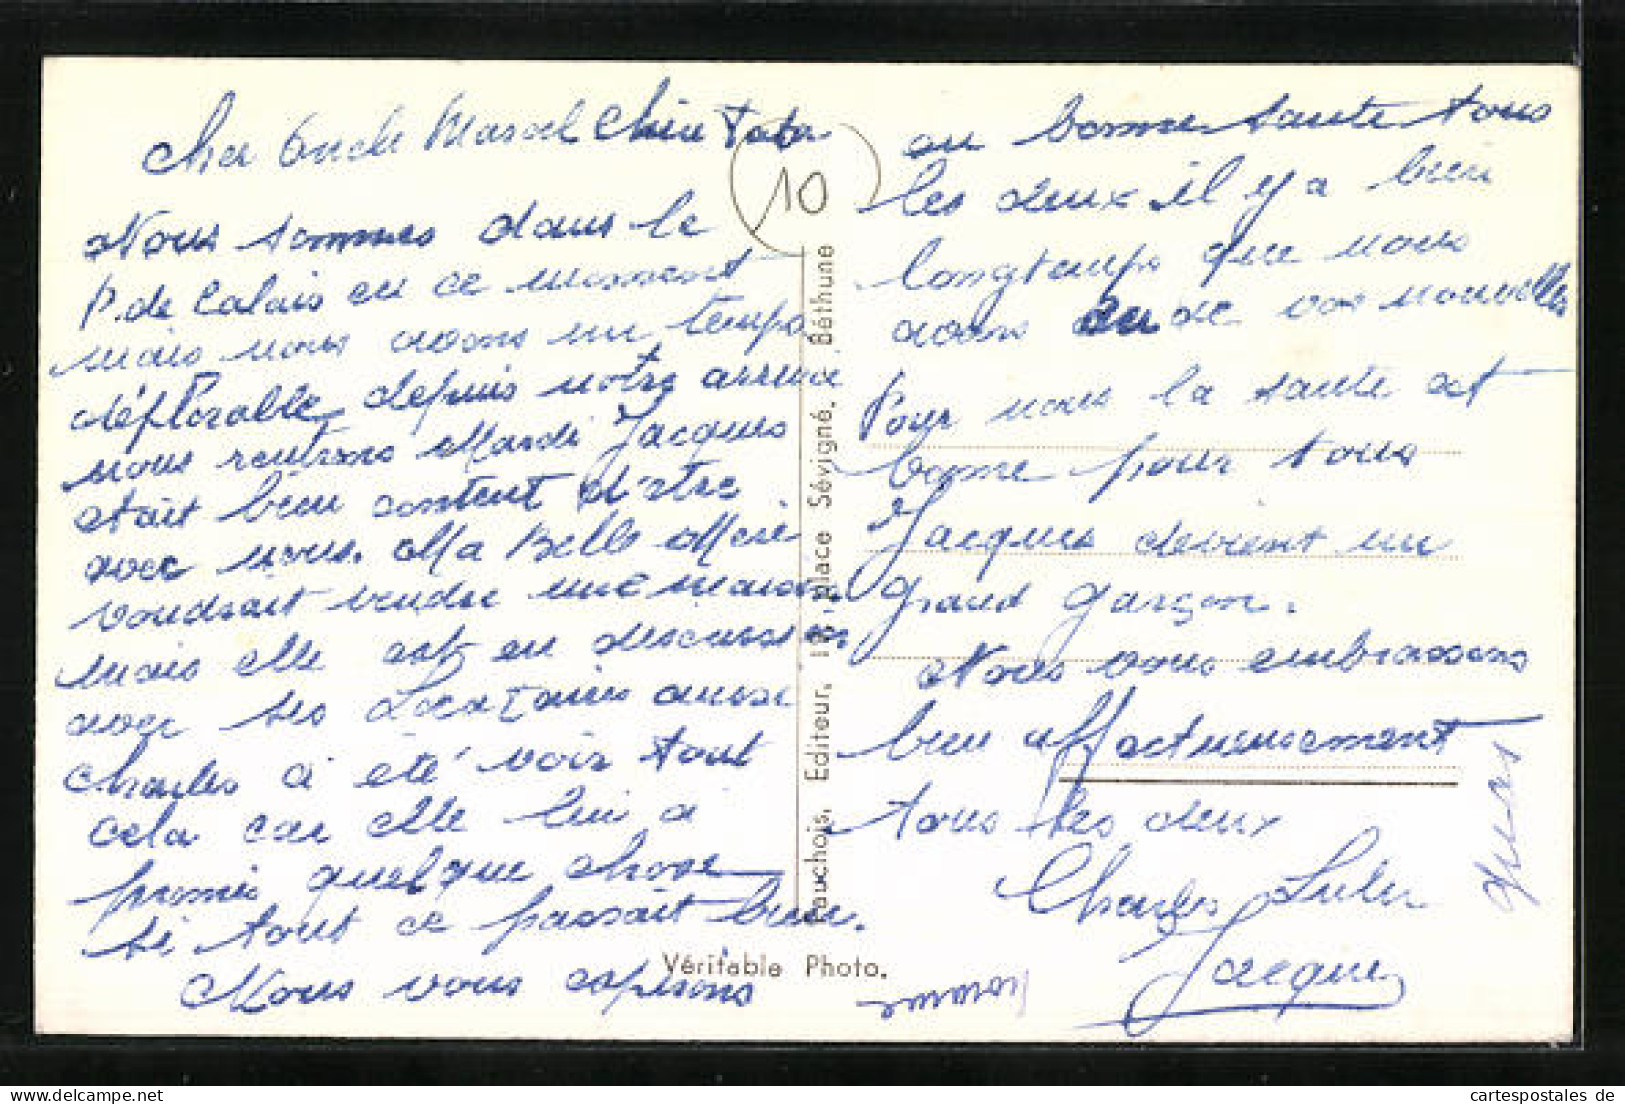 Cher Oncle Marcel Chère Tata
Nous sommes dans le
P. de Calais en ce moment
mais nous avons un temps
déplorable depuis notre arrivée
nous rentrons Mardi Jacques
était bien content d'être
avec nous. Ma Belle Mère
voudrait vendre une maison
mais elle est en discussion
avec ses Locataires aussi
Charles a été voir tout
cela car elle lui a
promis quelque chose
si tout ce passait bien.
Nous vous espérons
en bonne santé tous
les deux il y a bien
longtemps que nous
avons eu de vos nouvelles
Pour nous la santé est
bonne pour tous
Jacques devient un
grand garçon.
Nous vous embrassons
bien affectueusement
tous les deux
Charles
Jacques
10
Fauchois, Editeur, 18, place Sévigné, Béthune
Véritable Photo.
cartespostales de